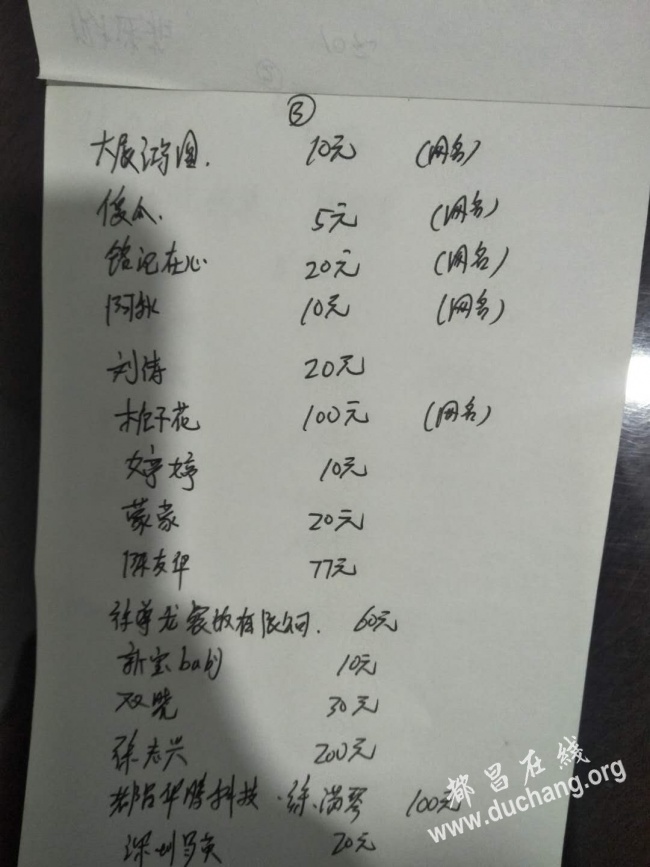 ③
大展鸿图. 10元 (网名)
傻瓜. 5元 (网名)
铭记在心 20元 (网名)
阿秋 10元 (网名)
刘涛 20元
栀子花 100元 (网名)
婷婷 10元
蒙蒙 20元
陈友华 77元
徐 60元
新宝baby 10元
双 30元
徐志兴 200元
都昌华腾科技·徐满琴 100元
深圳 20元
都昌在线
www.duchang.org